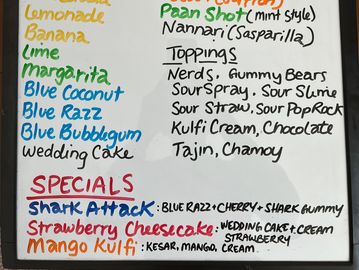 Lemonade
Banana
Lime
Margarita
Blue Coconut
Blue Razz
Blue Bubblegum
Wedding Cake
Paan Shot (mint style)
Nannari (Sasparilla)
Toppings
Nerds, Gummy Bears
Sour Spray, Sour Slime
Sour Straw, Sour Pop Rock
Kulfi Cream, Chocolate
Tajin, Chamoy
SPECIALS
Shark Attack: BLUE RAZZ + CHERRY + SHARK GUMMY
Strawberry Cheesecake: WEDDING CAKE + CREAM
STRAWBERRY
Mango Kulfi: KESAR, MANGO, CREAM